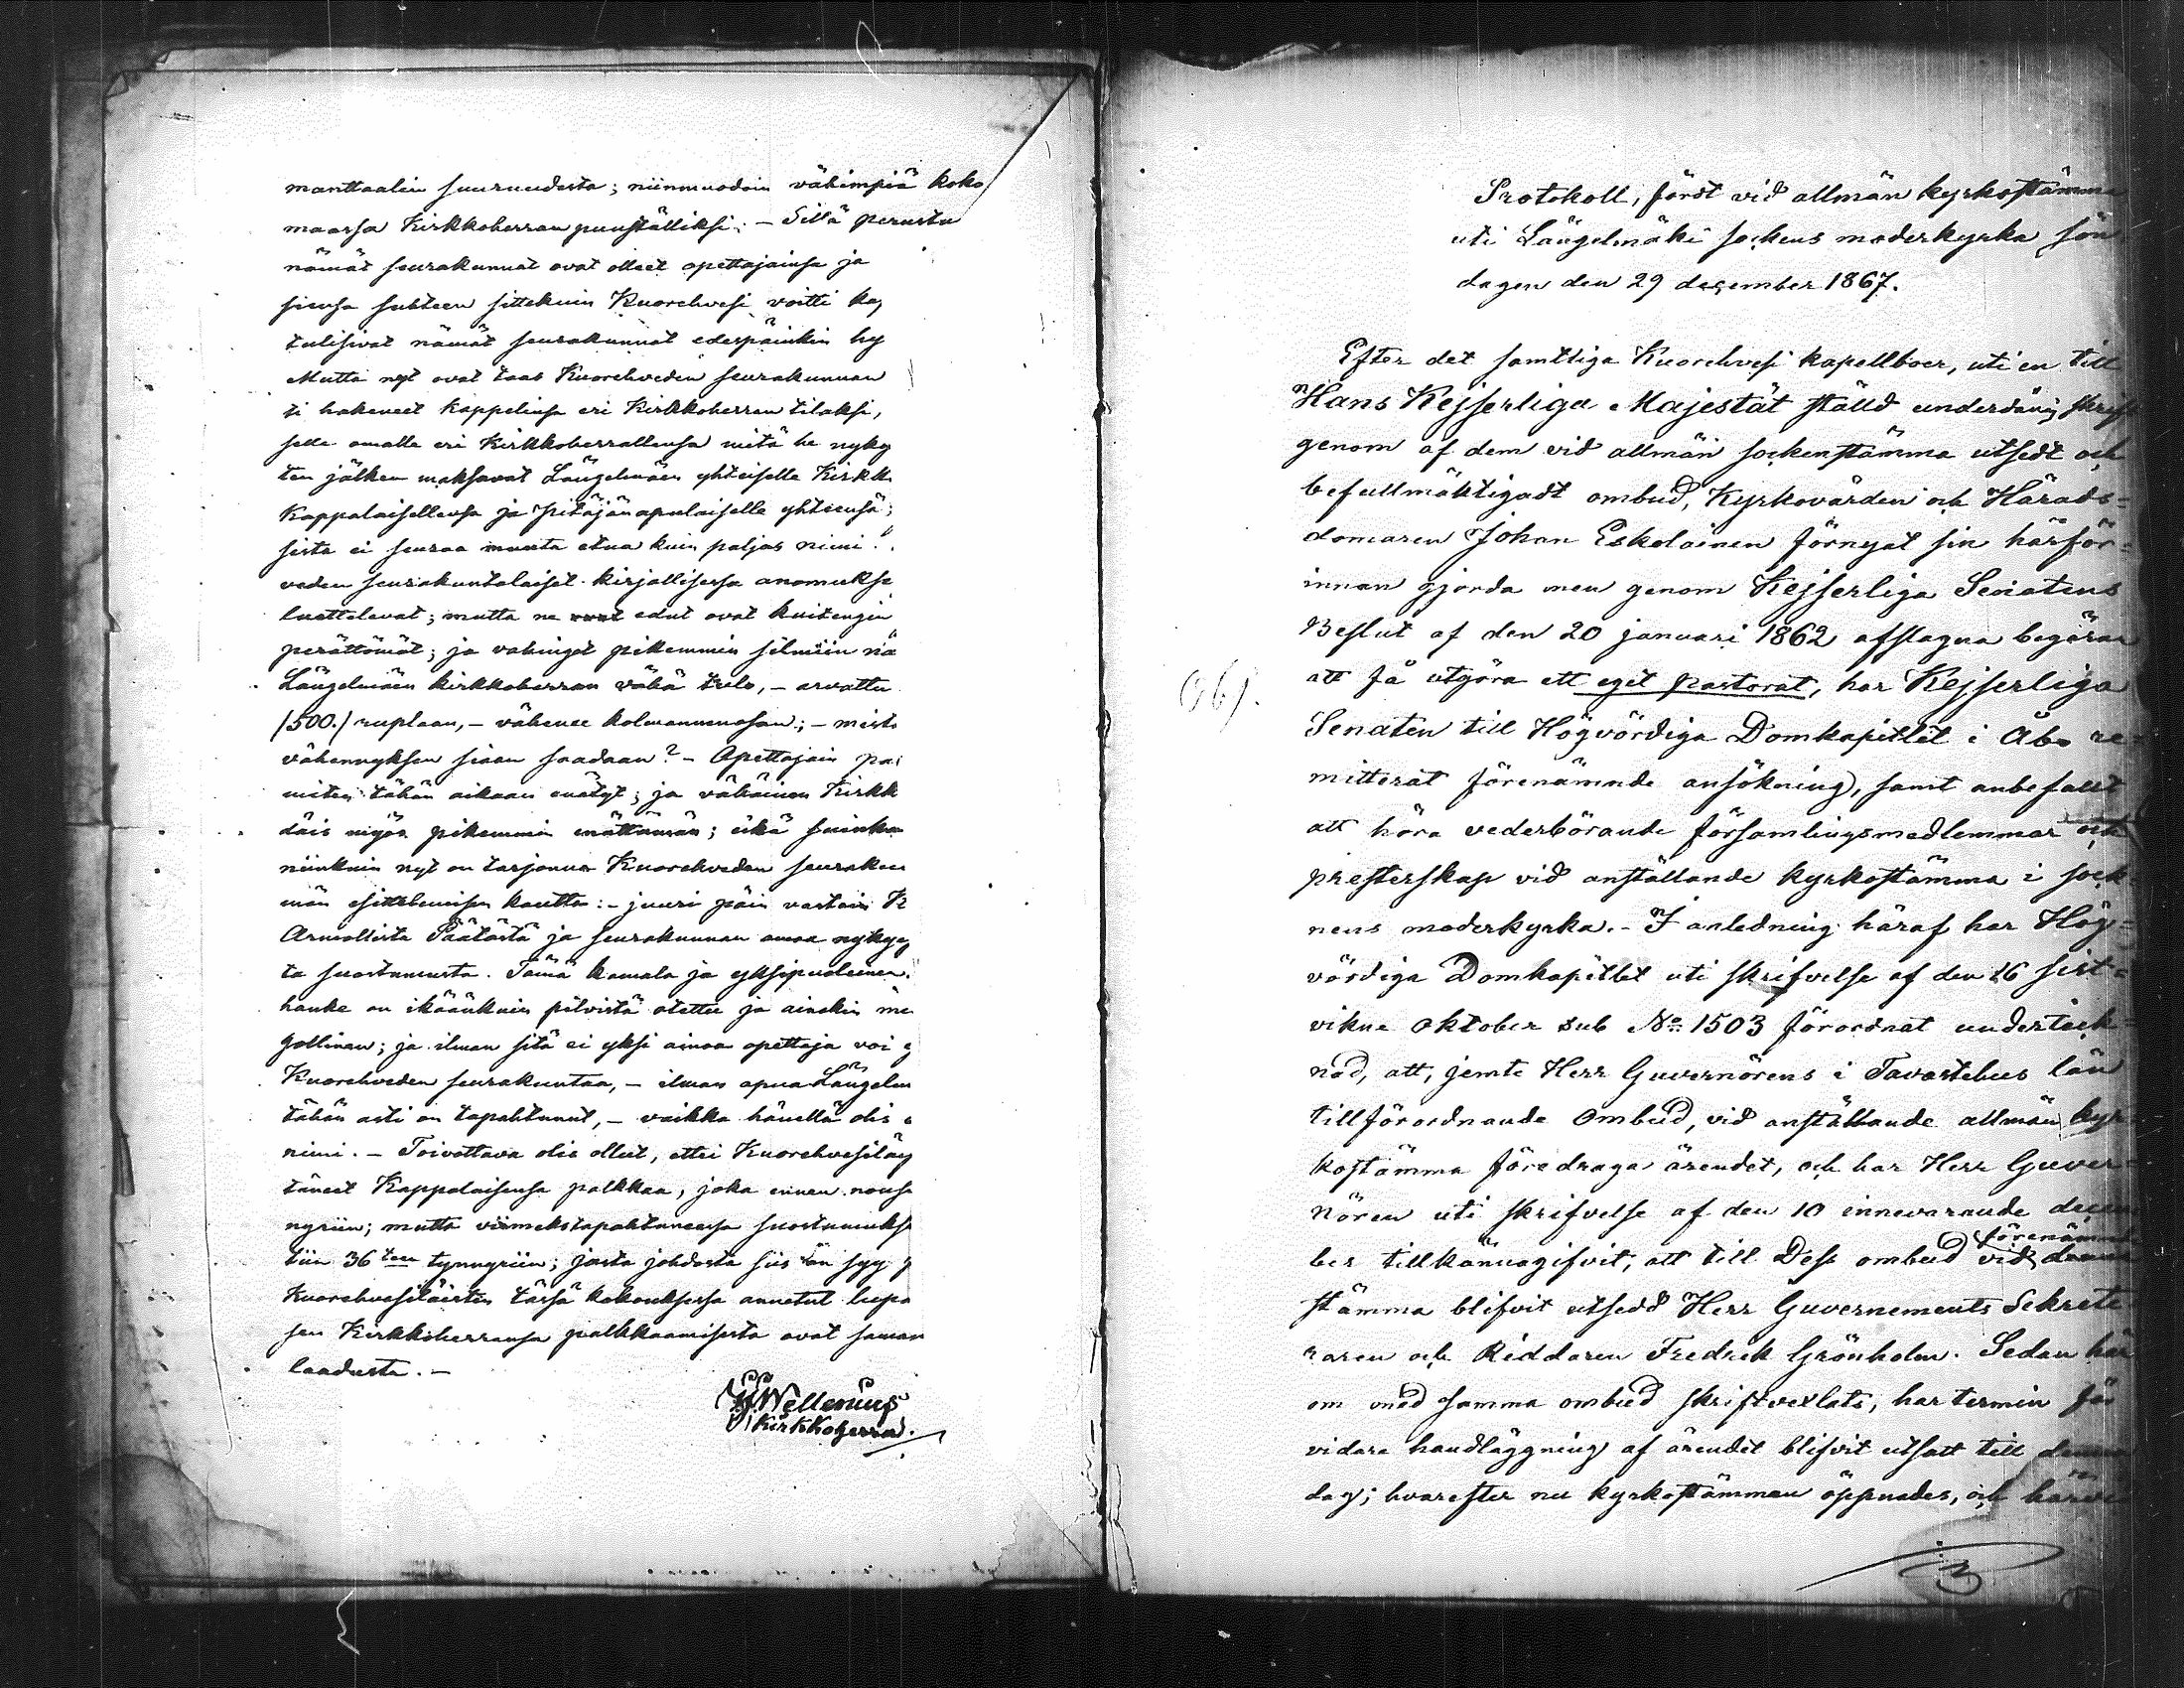 manttaalin suuruudesta; niinmuodoin vähimpiä koko
maassa Kirkkoherran puuställiksi. – Sillä perustu
nämät seurakunnat ovat olleet opettajainsa ja
siensa suhteen sittekuin Kuorehvesi voitti ka,
tulisivat nämät seurakunnat edespäinkin hy
Mutta nyt ovat taas Kuorehveden seurakunnan
ti hakeneet kappelinsa eri Kirkkoherran tilaksi,
selle omalle eri Kirkkoherrallensa mitä he nyky
ten jälken maksavat Längelmäen yhteiselle Kirkk
Kappalaisellensa ja Pitäjänapulaiselle yhteensä;
sista ei seuraa muuta etua kuin paljas nimi.
veden seurakuntalaiset kirjallisessa anomukse
luettelevat; mutta ne edut ovat kuitengin
perättömät; ja vahingot pikemmin silmiin nä
Längelmäen kirkkoherran vähä tulo, – arvattu
/500./ ruplaan, – vähenee kolmannenosan; – mist
vähennyksen siaan saadaan? – Opettajain pa
miten tähän aikaan enätyt; ja vähäinen Kirkk
däis myös pikemmin enättämän; eikä suinkan
niinkuin nyt on tarjonna Kuorehveden seuraku
män esittelemisen kautta: – juuri päin vastoin K
Armollista Päätöstä ja seurakunnan omaa nykyy
ta suostumusta. Tämä kamala ja yksipuolinen
hanke on ikäänkuin pilvistä otettu ja ainakin me
gollinan; ja ilman sitä ei yksi ainoa opettaja voi
Kuorehveden seurakuntaa, – ilman apua Längelm
tähän asti on tapahtunut, – vaikka hänellä olis
nimi. – Toivottava olis ollut, ettei Kuorehvesiläy
täneet Kappalaisensa palkkaa, joka ennen nousi
nyriin; mutta viimeks tapahtuneessa suostumukse
tiin 36 ten tynnyriin; josta johdosta siis on syy
Kuorehvesiläisten tässä kokouksessa annetut lupa
sen Kirkkoherransa palkkaamisesta ovat saman
laadusta. –
Wellenius
Kirkkoherra.
Protokoll, fördt vid allmän kyrkostämma
uti Längelmäki sockens moderkyrka sön
dagen den 29 december 1867.
Efter det samtliga Kuorehvesi kapellboer, uti en till
Hans Kejserliga Majestät ställd underdånig skrift
genom af dem vid allmän sockenstämma utsedt och
befullmäktigadt ombud, Kyrkovärden och Härads=
domaren Johan Eskolainen förnyat sin härför=
innan gjorda men genom Kejserliga Senatens
Beslut af den 20 januari 1862 afslagna begäran
att få utgöra ett eget pastorat, har Kejserliga
Senaten till Högvördiga Domkapitlet i Åbo re=
mitterat förenämnde ansökning, samt anbefallt
att höra vederbörande församlingsmedlemmar och
presterskap vid anställande kyrkostämma i sock
nens moderkyrka. – I anledning häraf har Hög=
vördiga Domkapitlet uti skrifvelse af den 16 sist=
vikne oktober sub No 1503 förordnat underteck=
nad, att, jemte Herr Guvernörens i Tavastehus län
tillförordnande Ombud, vid anställande allmän kyr
kostämma föredraga ärendet, och har Herr Guver=
nören uti skrifvelse af den 10 innevarande decem
ber tillkännagifvit, att till Dess ombud vid förenämnde
stämma blifvit utsedd Herr Guvernements Sekrete
raren och Riddaren Fredrik Grönholm. Sedan här
om med samma ombud skriftvexlats, har termin för
vidare handläggning af ärendet blifvit utsatt till denna
dag; hvarefter nu kyrkostämman öppnades, och härvi